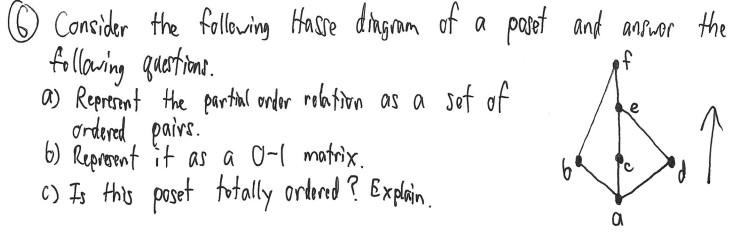 ⑥ Consider the following Hasse diagram of a poset and answer the
following questions.
a) Represent the partial order relation as a set of
ordered pairs.
b) Represent it as a 0-1 matrix.
c) Is this poset totally ordered? Explain.
f
e
b
c
d
a